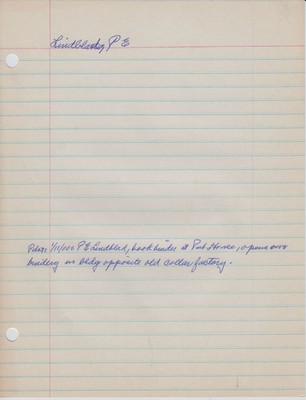 Lindblad, P E
1/11/1000 P E Lindblad, book binder at Pub. House, opens own
bindery in bldg opposite old collar factory.